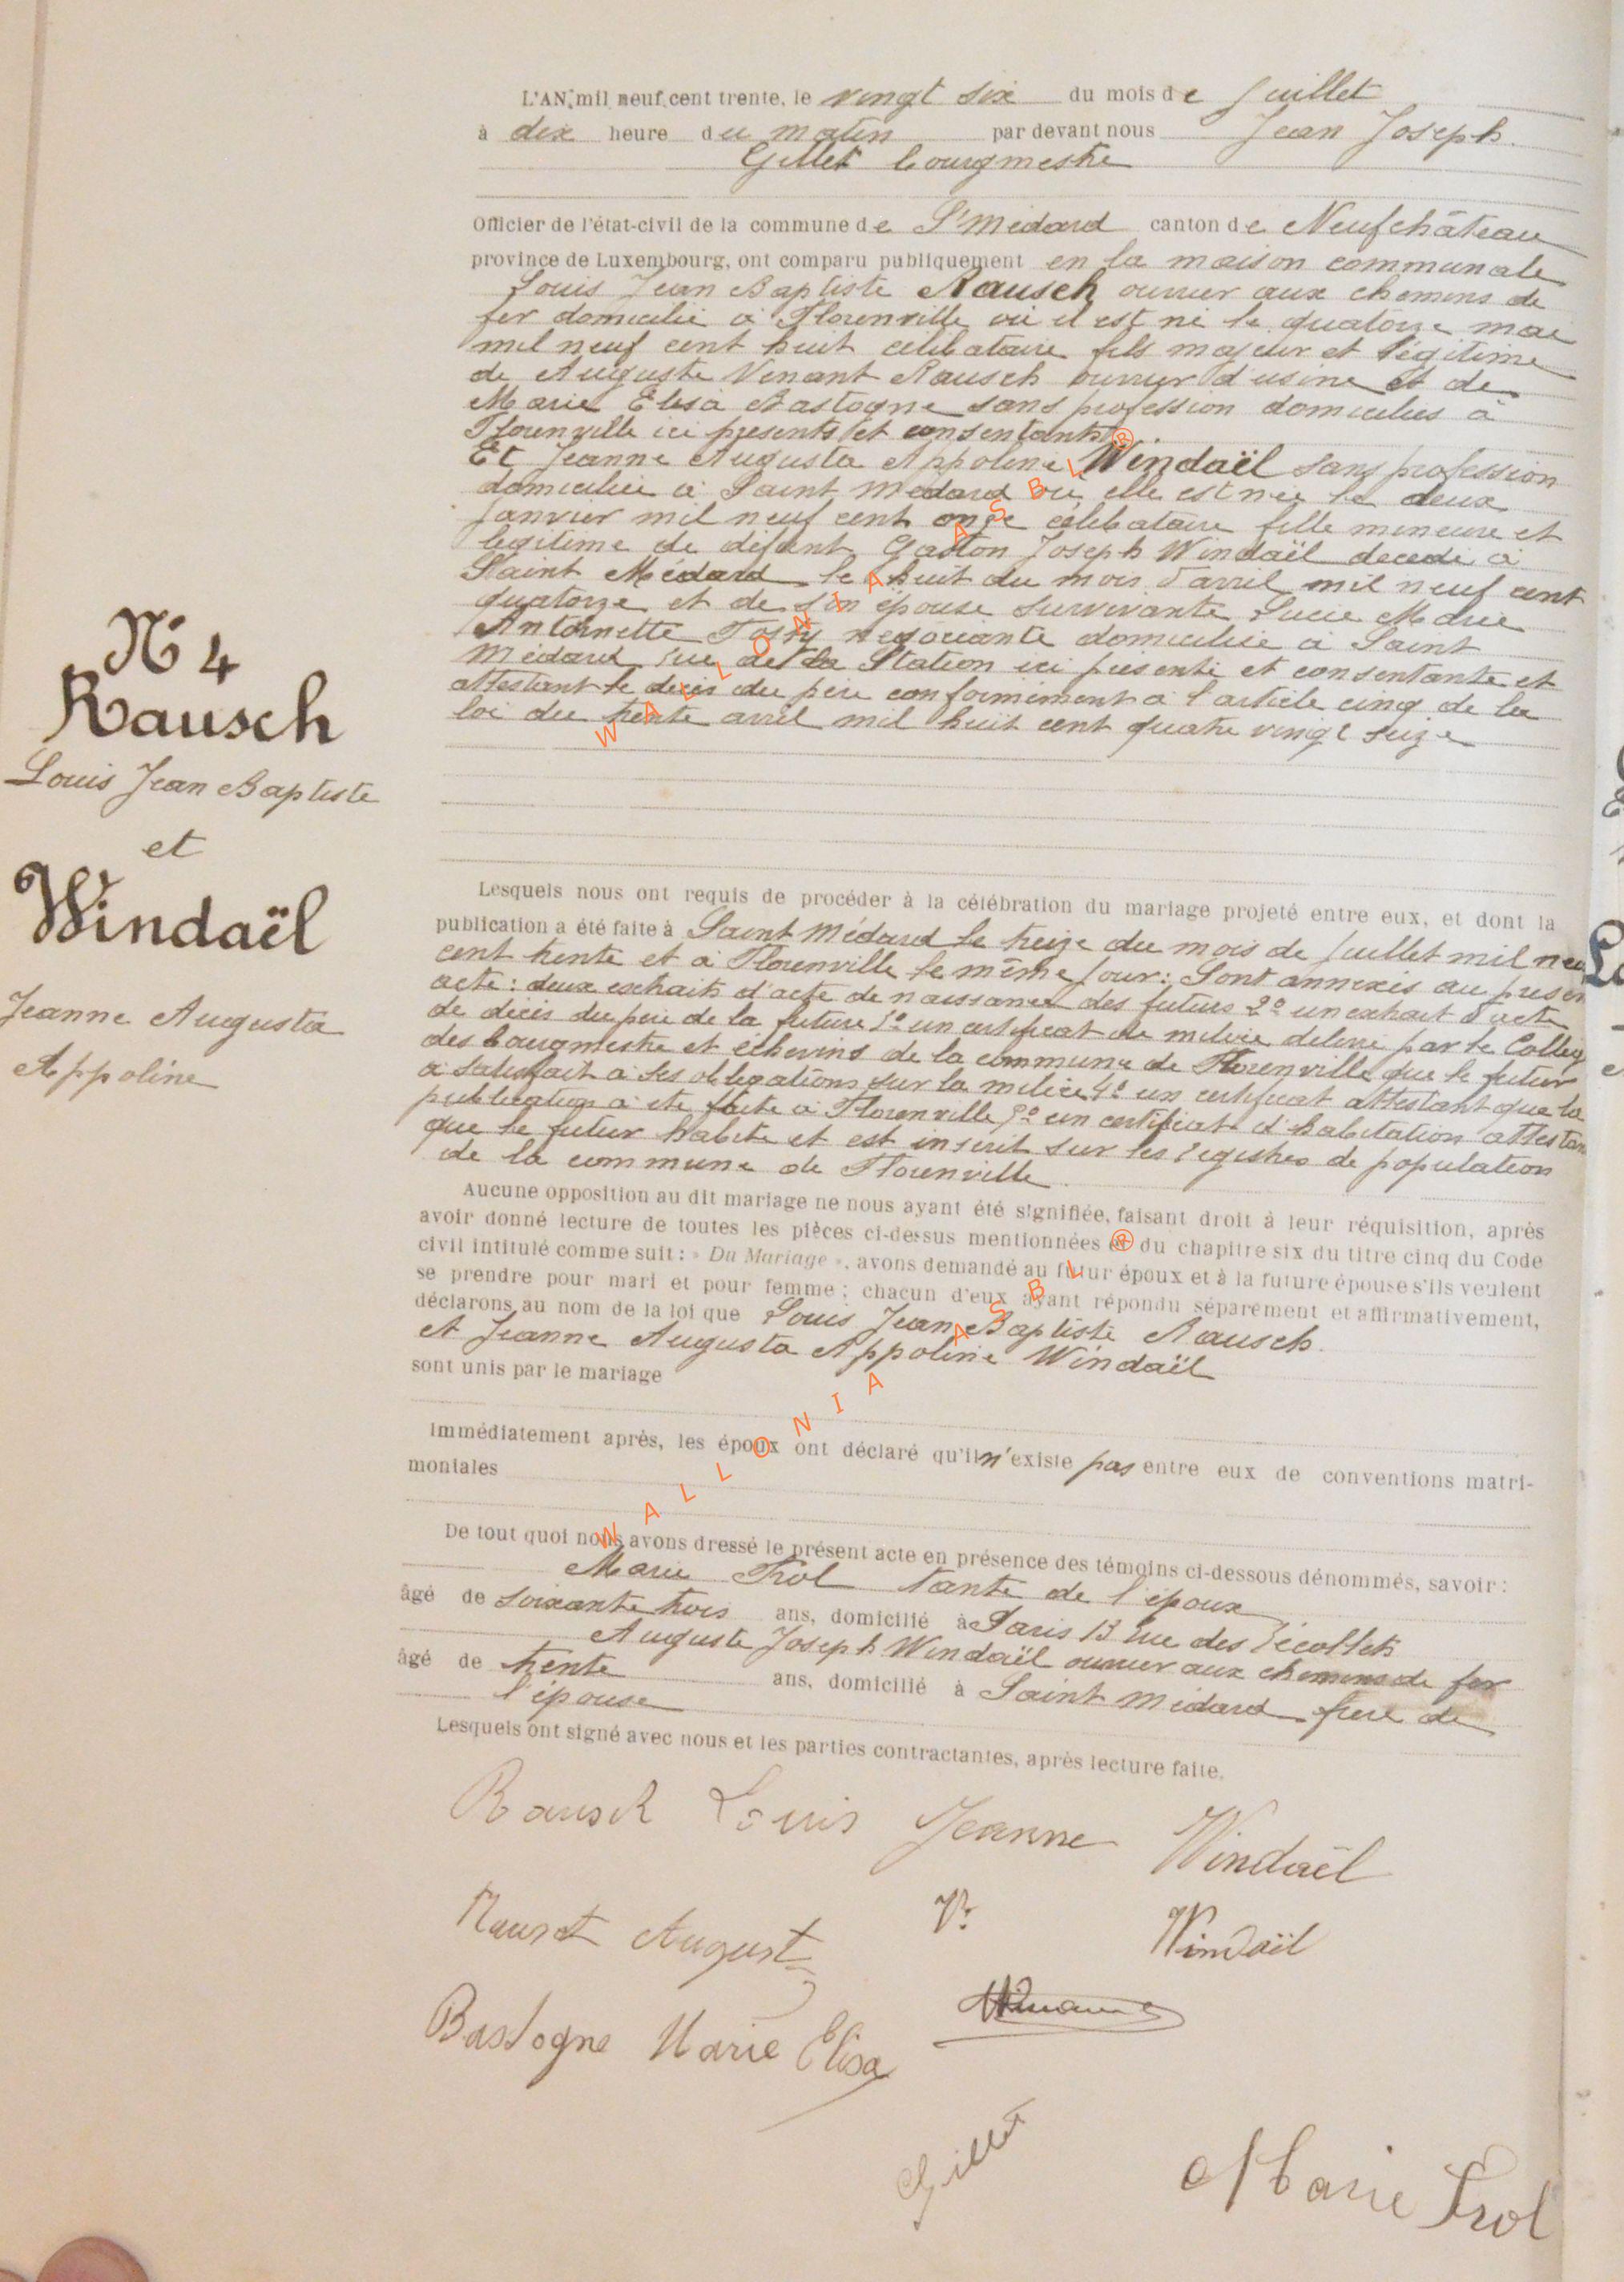 L'AN mil neuf cent trente, le vingt six du mois de Juillet
à dix heure du matin par devant nous Jean Joseph
Gillet bourgmestre
Officier de l'état-civil de la commune de St Médard canton de Neufchâteau
province de Luxembourg, ont comparu publiquement en la maison communale
Louis Jean Baptiste Rausch ouvrier aux chemins de
fer domicilié à Florenville où il est né le quatorze mai
mil neuf cent huit célibataire fils majeur et légitime
de Auguste Venant Rausch ouvrier d'usine et de
Marie Elisa Bastogne sans profession domiciliés à
Florenville ici présents et consentants.
Et Jeanne Augusta Appoline Windaël sans profession
domiciliée à Saint Médard où elle est née le deux
Janvier mil neuf cent onze célibataire fille mineure et
légitime de défunt Gaston Joseph Windaël décédé à
Saint Médard le huit du mois d'avril mil neuf cent
quatorze et de son épouse survivante Lucie Marie
Antoinette négociante domiciliée à Saint
Médard rue de la Station ici présente et consentante et
attestant le décès du père conformément à l'article cinq de la
loi du trente avril mil huit cent quatre vingt seize
N° 4
Rausch
Louis Jean Baptiste
et
Windaël
Jeanne Augusta
Appoline
Lesquels nous ont requis de procéder à la célébration du mariage projeté entre eux, et dont la
publication a été faite à Saint Médard le treize du mois de Juillet mil neu
cent trente et à Florenville le même jour: Sont annexés au présen
acte: deux extraits d'acte de naissance des futurs 2° un extrait d'acte
de décès du père de la future 3° un certificat de milice délivré par le Collèg
des bourgmestre et échevins de la commune de Florenville que le futur
a satisfait à ses obligations sur la milice 4° un certificat attestant que la
publication a été faite à Florenville 5° un certificat d'habitation attestan
que le futur habite et est inscrit sur les registres de population
de la commune de Florenville.
Aucune opposition au dit mariage ne nous ayant été signifiée, faisant droit à leur réquisition, après
avoir donné lecture de toutes les pièces ci-dessus mentionnées et du chapitre six du titre cinq du Code
civil intitulé comme suit : « Du Mariage », avons demandé au futur époux et à la future épouse s'ils veulent
se prendre pour mari et pour femme ; chacun d'eux ayant répondu séparément et affirmativement,
déclarons au nom de la loi que Louis Jean Baptiste Rausch
et Jeanne Augusta Appoline Windaël
sont unis par le mariage
Immédiatement après, les époux ont déclaré qu'il n'existe pas entre eux de conventions matri-
moniales
De tout quoi nous avons dressé le présent acte en présence des témoins ci-dessous dénommés, savoir :
Marie Frol tante de l'époux
âgé de soixante trois ans, domicilié à Paris 13 rue des Récollets
Auguste Joseph Windaël ouvrier aux chemins de fer
âgé de trente ans, domicilié à Saint Médard frère de
l'épouse
Lesquels ont signé avec nous et les parties contractantes, après lecture faite.
Rausch Louis Jeanne Windaël
August Ve Windaël
Bastogne Marie Elisa
Gillet
Marie Frol
WALLONIA ASBL ®
WALLONIA ASBL ®